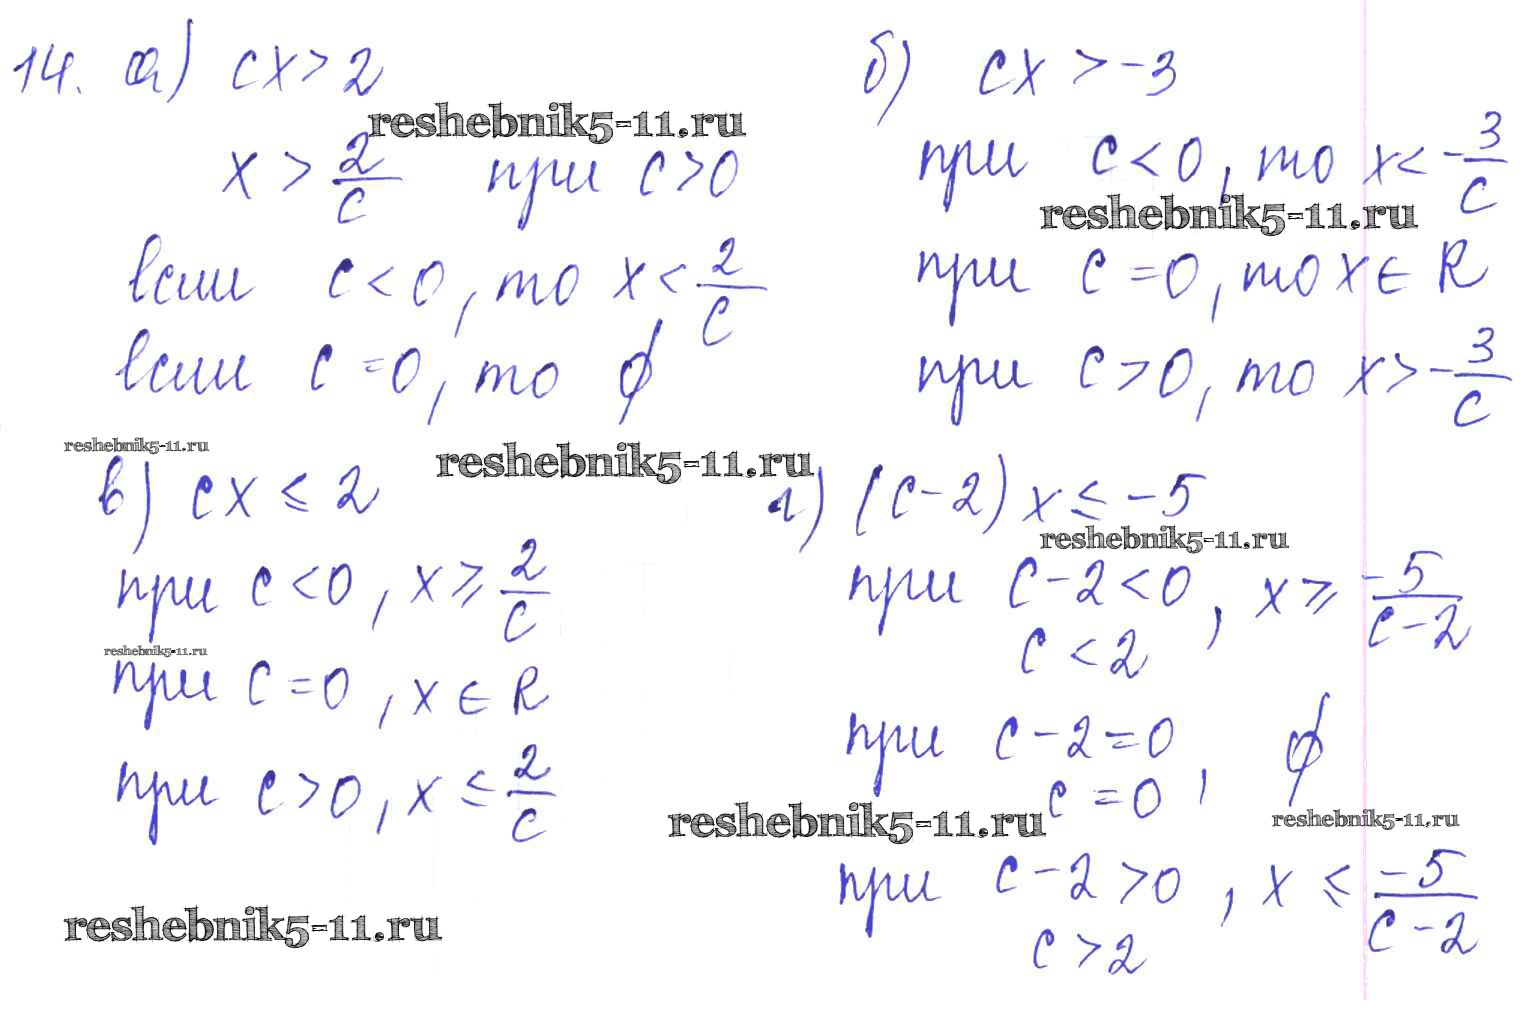 14. а) cx > 2
reshebnik5-11.ru
x > 2/c при c > 0
если c < 0, то x < 2/c
если c = 0, то ∅
б) cx > -3
при c < 0, то x < -3/c
reshebnik5-11.ru
при c = 0, то x ∈ R
при c > 0, то x > -3/c
reshebnik5-11.ru
reshebnik5-11.ru
в) cx ≤ 2
при c < 0, x ≥ 2/c
reshebnik5-11.ru
при c = 0, x ∈ R
при c > 0, x ≤ 2/c
reshebnik5-11.ru
г) (c - 2) x ≤ -5
reshebnik5-11.ru
при c - 2 < 0, x ≥ -5/(c - 2)
c < 2
при c - 2 = 0, ∅
c = 0
reshebnik5-11.ru
reshebnik5-11.ru
при c - 2 > 0, x ≤ -5/(c - 2)
c > 2